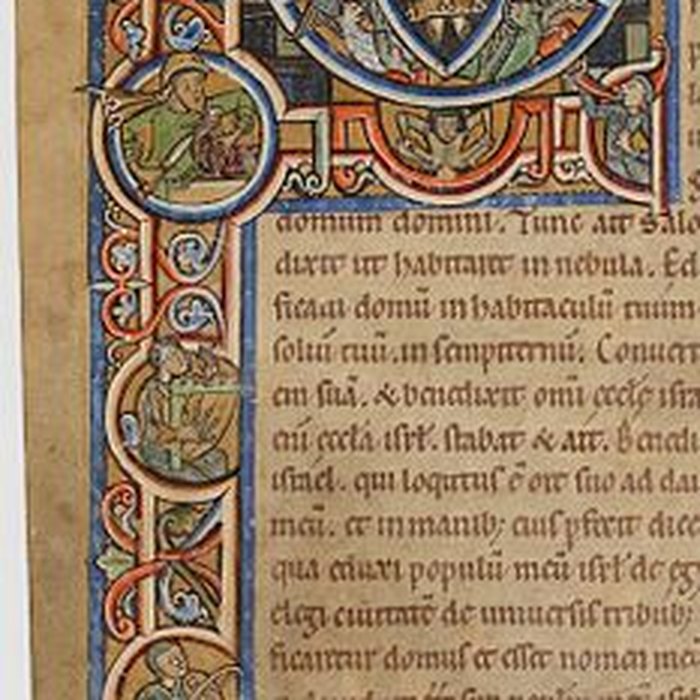 domum domini. Tunc ait Salo
dixit ut habitaret in nebula. Ed
ficaui domū in habitaculū tuum
soliū tuū. in sempiternū. Conuert
em suā. & benedixit omī eccłę isra
eñi eccła isrł. stabat & ait. Bened
israel. qui loqutus ē ore suo ad dau
meū. et in manib; eius pfecit dice
qua eduxi populū meū isrł de egy
elegi ciuitatē de uniuersis tribub;
ficaretur domus et esset nomen me